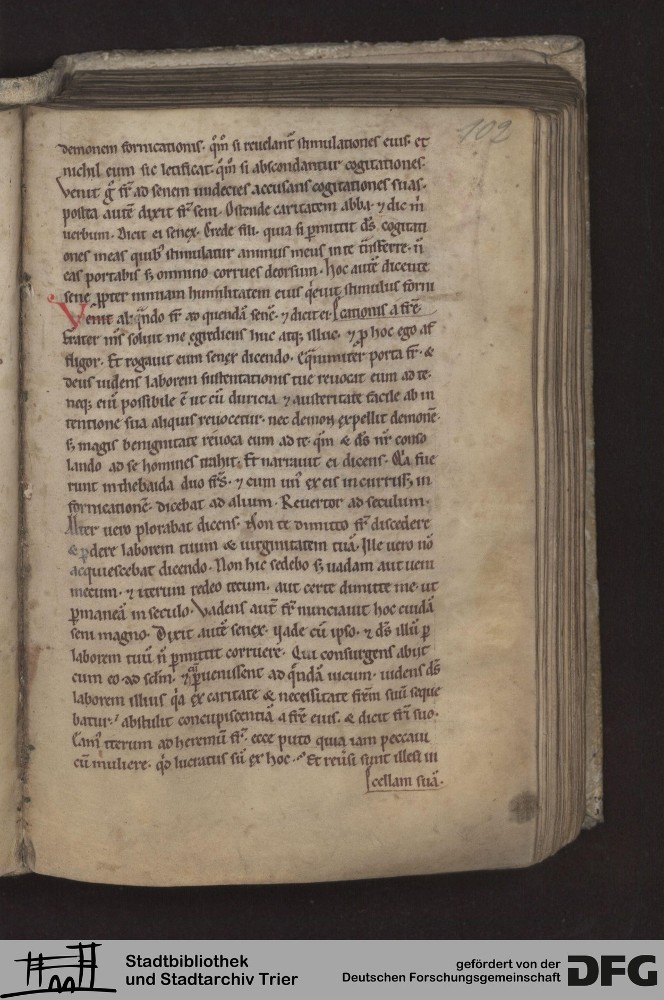 102
demonem fornicationis. qm̄ si reuelant̄ stimulationes eius. et
nichil eum sic letificat. qm̄ si abscondantur cogitationes.
Venit g̊ fr̄ ad senem undecies accusans cogitationes suas.
postea autē dixit fr̄ seni. Ostende caritatem abba. ⁊ dic m̄
uerbum. Dicit ei senex. Crede fili. quia si p̄mittit ds̄ cogitati
ones meas quib; stimulatur animus meus in te tn̄sferre. n̄
eas portabis s; omnino corrues deorsum. Hoc autē dicente
sene pp̄ter nimiam humilitatem eius q̇euit stimulus forni
Venit aliq̇ndo fr̄ ad quendā senē. ⁊ dicit ei. [cationis a fr̄e.
frater ms̄ soluit me egrediens huc atq; illuc. ⁊ p̱ hoc ego af
fligor. Et rogauit eum senex dicendo. Eq̇nimit̄ porta fr̄. &
deus uidens laborem sustentationis tue reuocat eum ad te.
neq; eni̅ possibile ē ut cū duricia ⁊ austeritate facile ab in
tentione sua aliquis reuocetur. nec demon expellit demonē.
s; magis benignitate reuoca eum ad te. qm̄ & ds̄ nr̄ conso
lando ad se homines trahit. Et narrauit ei dicens. Q̇a fue
runt in thebaida duo fr̄s. ⁊ cum un᷒ ex eis incurriss; in
fornicationē. dicebat ad alium. Reuertor ad seculum.
Alter uero plorabat dicens. Non te dimitto fr̄ discedere
& p̱dere laborem tuum & uirginitatem tuā. Ille uero nō
acquiescebat dicendo. Non hic sedebo s; uadam aut ueni
mecum. ⁊ iterum redeo tecum. aut certe dimitte me. ut
p̱maneā in seculo. Vadens aut̄ fr̄ nunciauit hoc cuidā
seni magno. Dixit autē senex. Vade cū ipso. ⁊ ds̄ illū p̱
laborem tuū n̄ p̱mittit corruere. Qui consurgens abiit
cum eo ad sclm̄. ⁊ cū p̱uenissent ad q̇ndā uicum. uidens ds̄
laborem illius q̇a ex caritate & necessitate fr̄em suū seque
batur. abstulit concupiscentiā a fr̄e eius. & dicit fr̄i suo.
Eam᷒ iterum ad heremū fr̄. ecce puto quia iam peccaui
cū muliere. q̇d lucratus sū ex hoc. Et reu̓si sunt illesi in
[cellam suā.
Stadtbibliothek
und Stadtarchiv Trier
gefördert von der
Deutschen Forschungsgemeinschaft
DFG